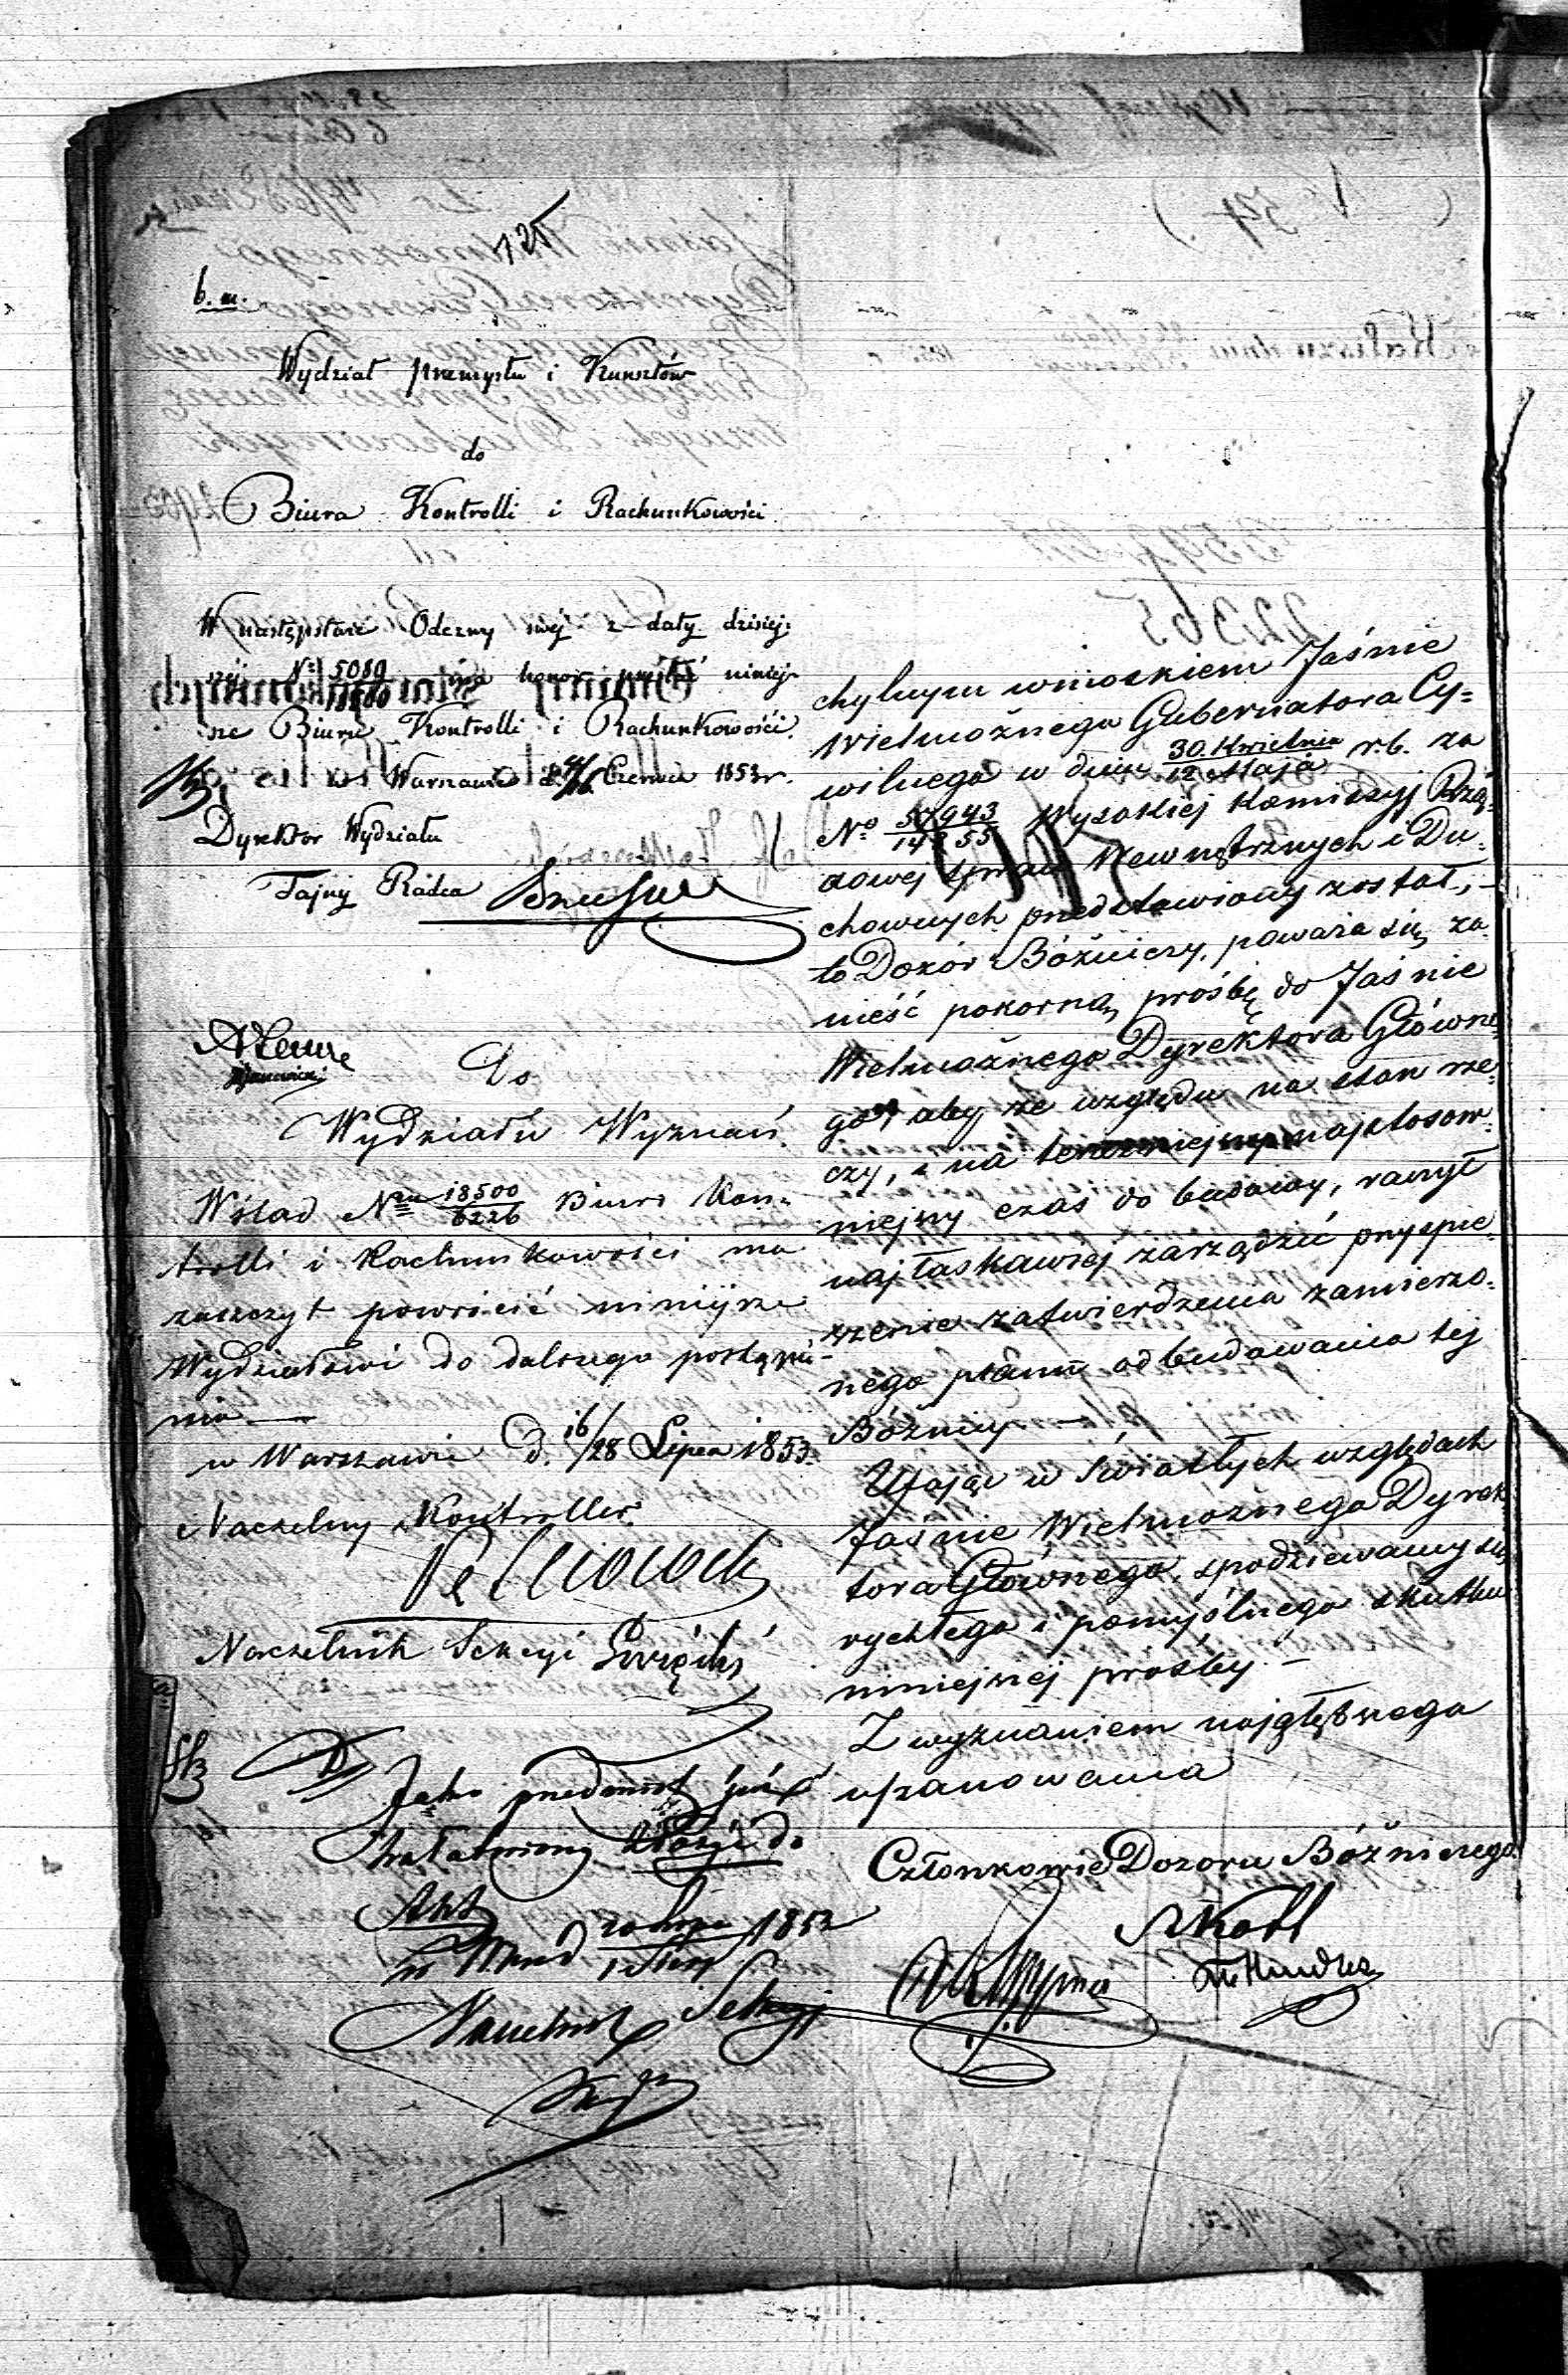 125
b. m.
Wydział Przemysłu i Kunsztów
do
Biura Kontrolli i Rachunkowości
W następstwie Odezwy swej z daty dzisiej:
szej N: 5080 ma honor przesłać niniej:
sze Biuru Kontrolli i Rachunkowości.
w Warszawie d. 4/16 Czerwca 1853 r.
Dyrektor Wydziału
Tajny Radca
Do
Wydziału Wyznań.
W ślad Nru 18500/6226 Biuro Kon:
trolli i Rachunkowości ma
zaszczyt powrócić niniejsze
Wydziałowi do dalszego postąpie-
nia —
w Warszawie d. 16/28 Lipca 1853.
Naczelny Kontroller
Naczelnik Sekcyi
Jako przedmiot już
załatwiony złożyć do
Akt
1853
Naczelnik Sekcyi
chylnym wnioskiem Jaśnie
Wielmożnego Gubernatora Cy=
wilnego w dniu 30 Kwietnia/12 Maja r. b. za
No Wysokiej Komissyj Rzą-
dowej Spraw Wewnętrznych i Du-
chownych przedstawiony został, —
to Dozór Bóżniczy, poważa się za-
nieść pokorną prośbę do Jaśnie
Wielmożnego Dyrektora Główne-
go, aby ze względu na stan rze-
czy, i na najstosow-
niejszy czas do budowy, raczył
najłaskawiej zarządzić przyspie-
szenie zatwierdzenia zamierzo-
nego planu odbudowania tej
Bóżnicy —
Ufając w światłych względach
Jaśnie Wielmożnego Dyrek-
tora Głównego, spodziewamy się
rychłego i pomyślnego skutku
niniejszej prośby —
Z wyznaniem najgłębszego
uszanowania
Członkowie Dozoru Bóżniczego.